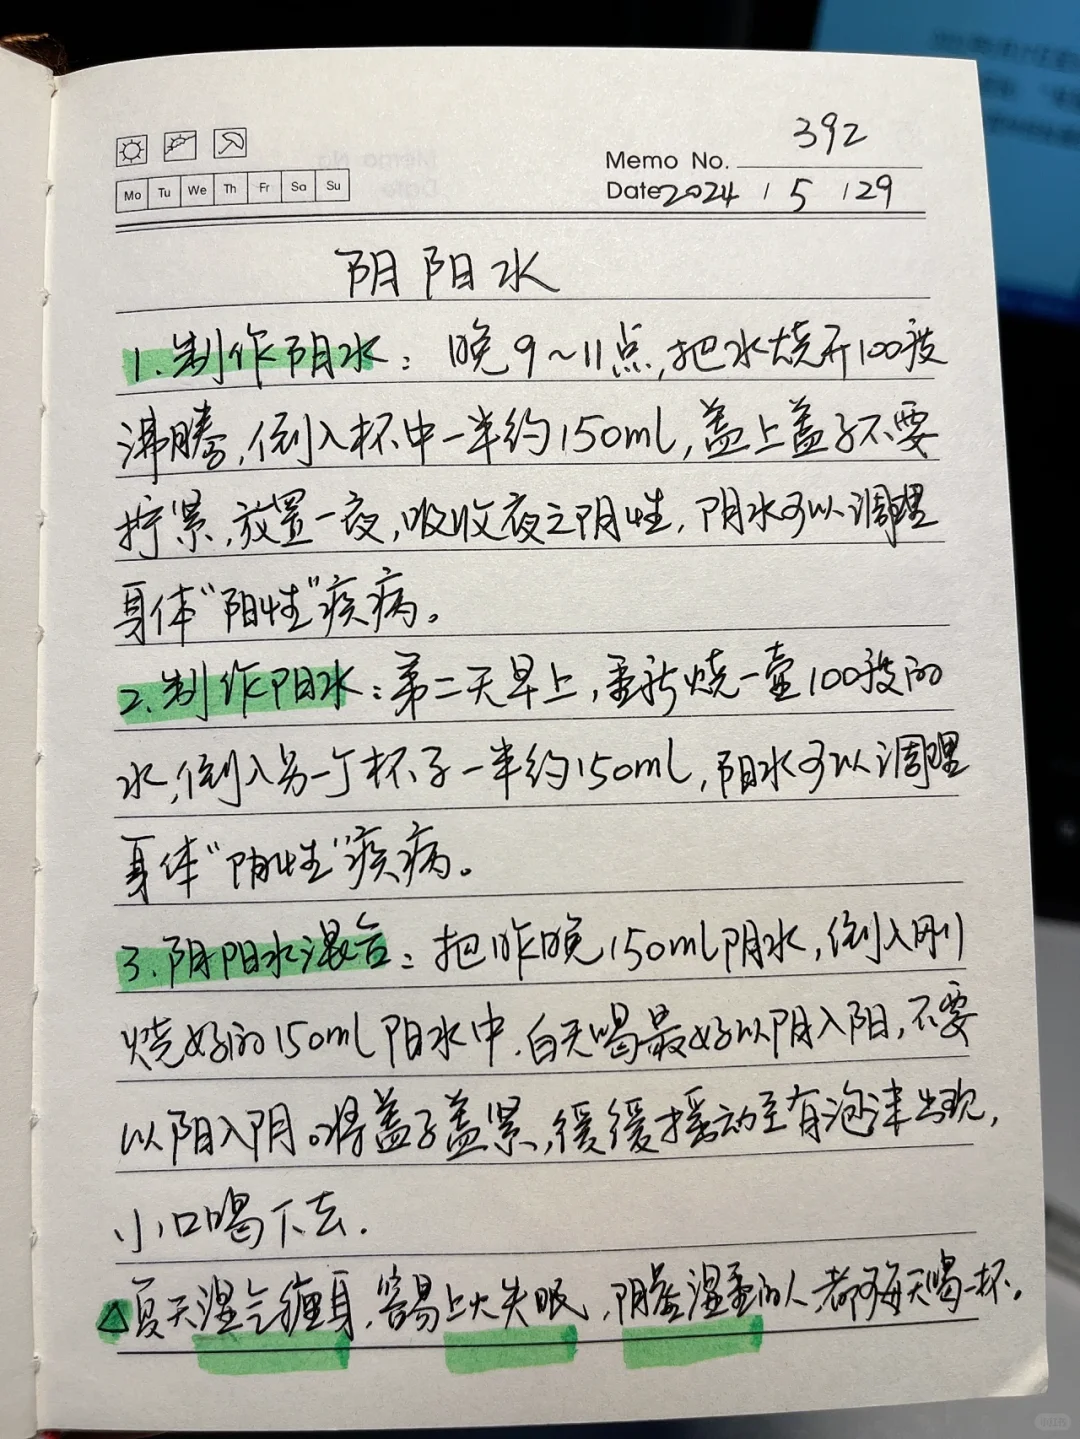 392
Memo No.
Date 2024 / 5 / 29
Mo Tu We Th Fr Sa Su
阴阳水
1.制作阴水：晚9~11点,把水烧开100度
沸腾,倒入杯中一半约150ml,盖上盖子不要
拧紧,放置一夜,吸收夜之阴性,阴水可以调理
身体“阳性”疾病。
2.制作阳水：第二天早上,重新烧一壶100度的
水,倒入另一个杯子一半约150ml,阳水可以调理
身体“阴性”疾病。
3.阴阳水混合：把昨晚150ml阴水,倒入刚
烧好的150ml阳水中.白天喝最好以阴入阳,不要
以阳入阴。将盖子盖紧,缓缓摇动至有泡沫出现,
小口喝下去.
△夏天湿气缠身,容易上火失眠,阴虚湿重的人都可每天喝一杯。